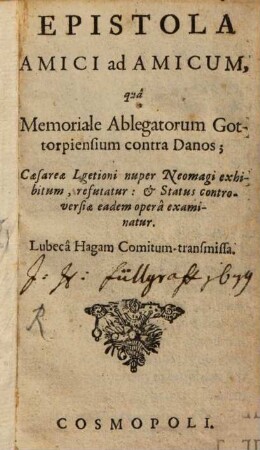 EPISTOLA
AMICI ad AMICUM,
quâ
Memoriale Ablegatorum Got-
torpiensium contra Danos;
Cæsareæ Lgetioni nuper Neomagi exhi-
bitum, refutatur: & Status contro-
versiæ eadem operâ exami-
natur.
Lubecâ Hagam Comitum-transmissa.
J: H: füllgraff 1679
R
COSMOPOLI.